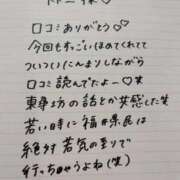 口コミありがとう♡
今回もすっごいほめてくれてて
ついついにんまりしながら
口コミ読んでたよー♡笑
東尋坊の話とか共感した笑
若い時に福井県民は
絶対若気の至りで
行っちゃうよね(笑)